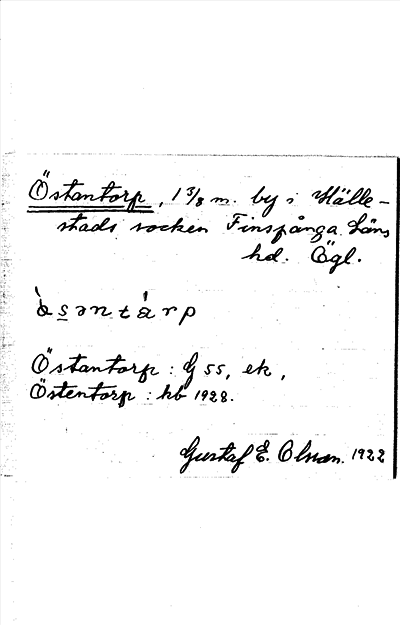 Östantorp, 1 3/8 m. by i Hälle-
stads socken Finspånga Läns
hd. Ögl.
Östantorp : G 55, ek,
Östentorp : kb 1928.
Gustaf E. Olson. 1922